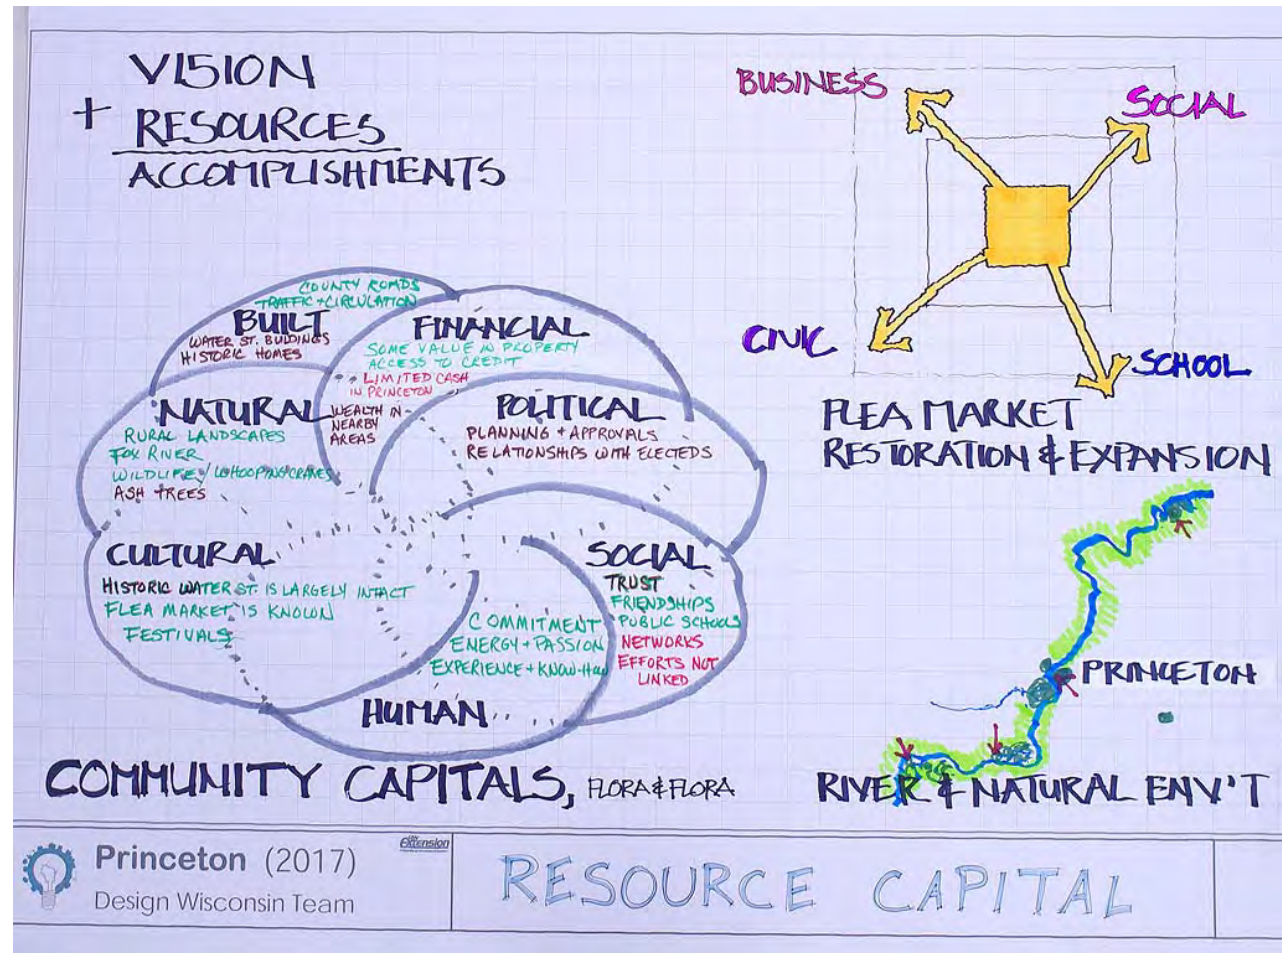 VISION
+ RESOURCES
ACCOMPLISHMENTS
BUSINESS
SOCIAL
CIVIC
SCHOOL
FLEA MARKET
RESTORATION & EXPANSION
COUNTY ROADS
TRAFFIC + CIRCULATION
BUILT
WATER ST. BUILDINGS
HISTORIC HOMES
FINANCIAL
SOME VALUE IN PROPERTY
ACCESS TO CREDIT
LIMITED CASH
IN PRINCETON
WEALTH IN
NEARBY
AREAS
NATURAL
RURAL LANDSCAPES
FOX RIVER
WILDLIFE / WHOOPING CRANES
ASH TREES
POLITICAL
PLANNING + APPROVALS
RELATIONSHIPS WITH ELECTEDS
CULTURAL
HISTORIC WATER ST. IS LARGELY INTACT
FLEA MARKET IS KNOWN
FESTIVALS
SOCIAL
TRUST
FRIENDSHIPS
PUBLIC SCHOOLS
NETWORKS
EFFORTS NOT
LINKED
COMMITMENT
ENERGY + PASSION
EXPERIENCE + KNOW-HOW
HUMAN
COMMUNITY CAPITALS, FLORA & FLORA
PRINCETON
RIVER & NATURAL ENV'T
Princeton (2017)
Design Wisconsin Team
Extension
RESOURCE CAPITAL